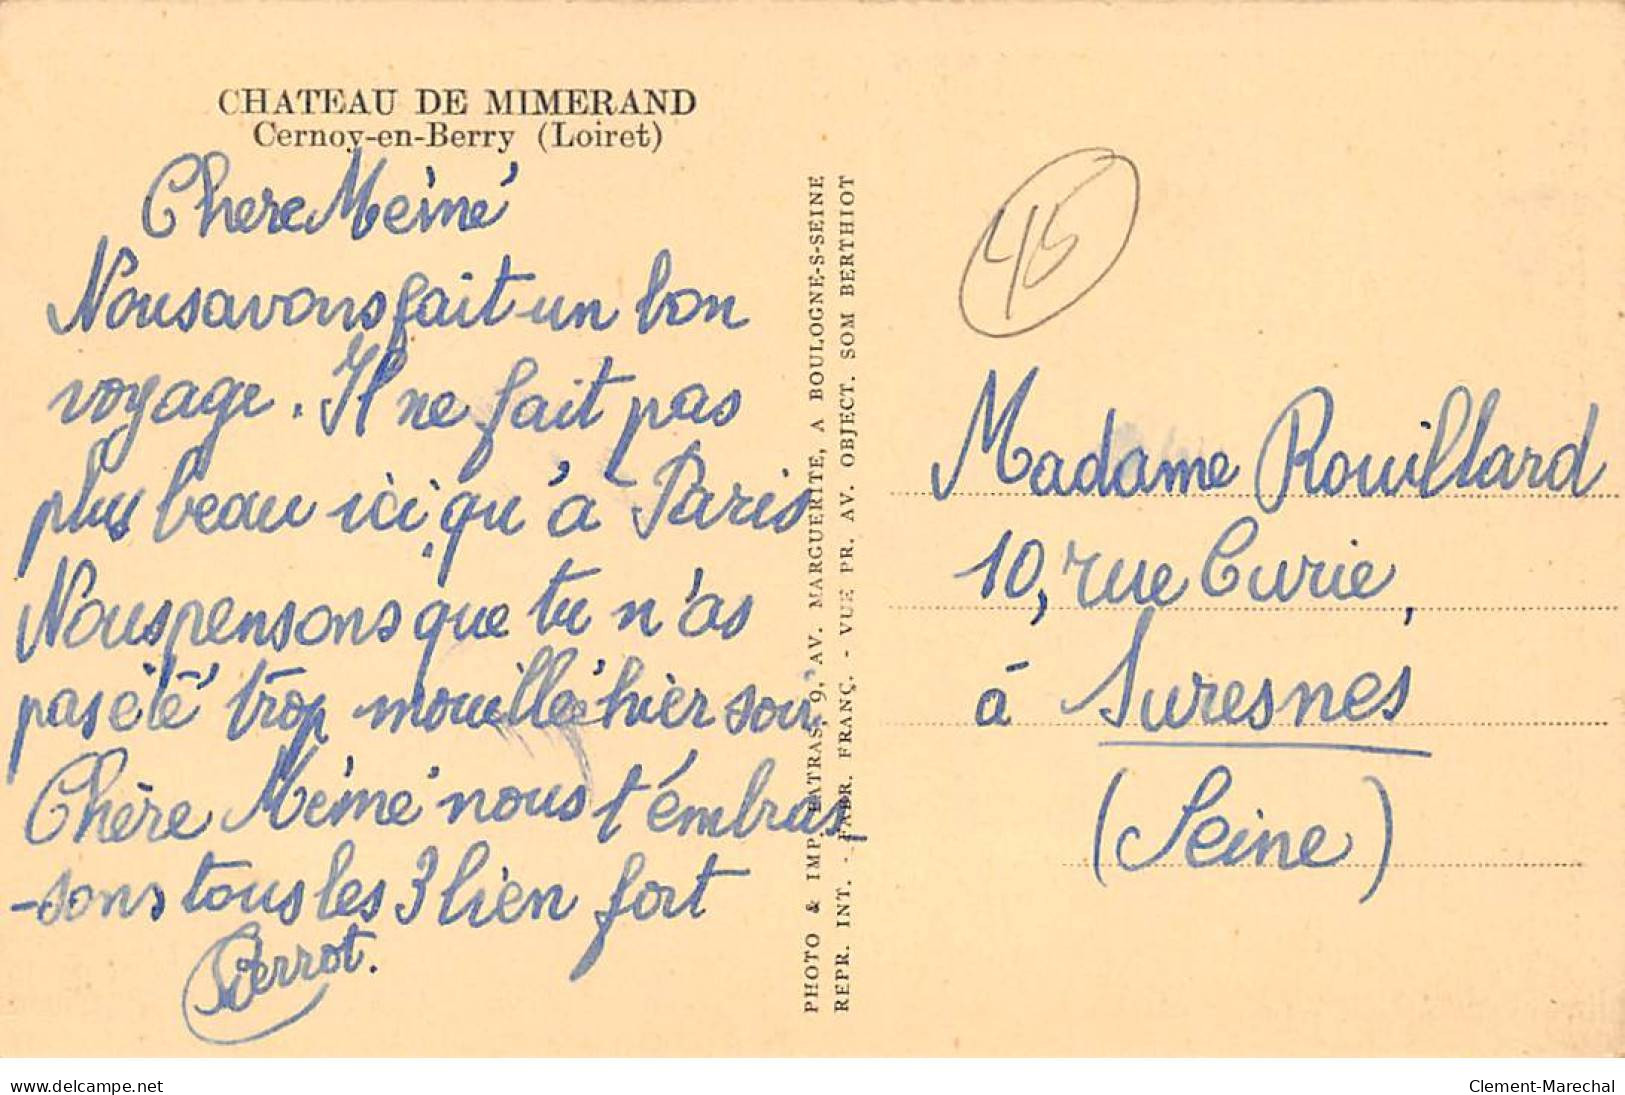 CHATEAU DE MIMERAND
Cernoy-en-Berry (Loiret)
Chere Mémé
Nous avons fait un bon
voyage. Il ne fait pas
plus beau ici qu'à Paris
Nous pensons que tu n'as
pas été trop mouillé hier soir
Chère Mémé nous t'embras
-sons tous les 3 bien fort
Pierrot.
PHOTO & IMP. PATRAS, 9, AV. MARGUERITE, A BOULOGNE-S-SEINE
REPR. INT. - FABR. FRANÇ. - VUE PR. AV. OBJECT. SOM BERTHIOT
45
Madame Rouillard
10, rue Curie,
à Suresnes
(Seine)
www.delcampe.net
Clement-Marechal